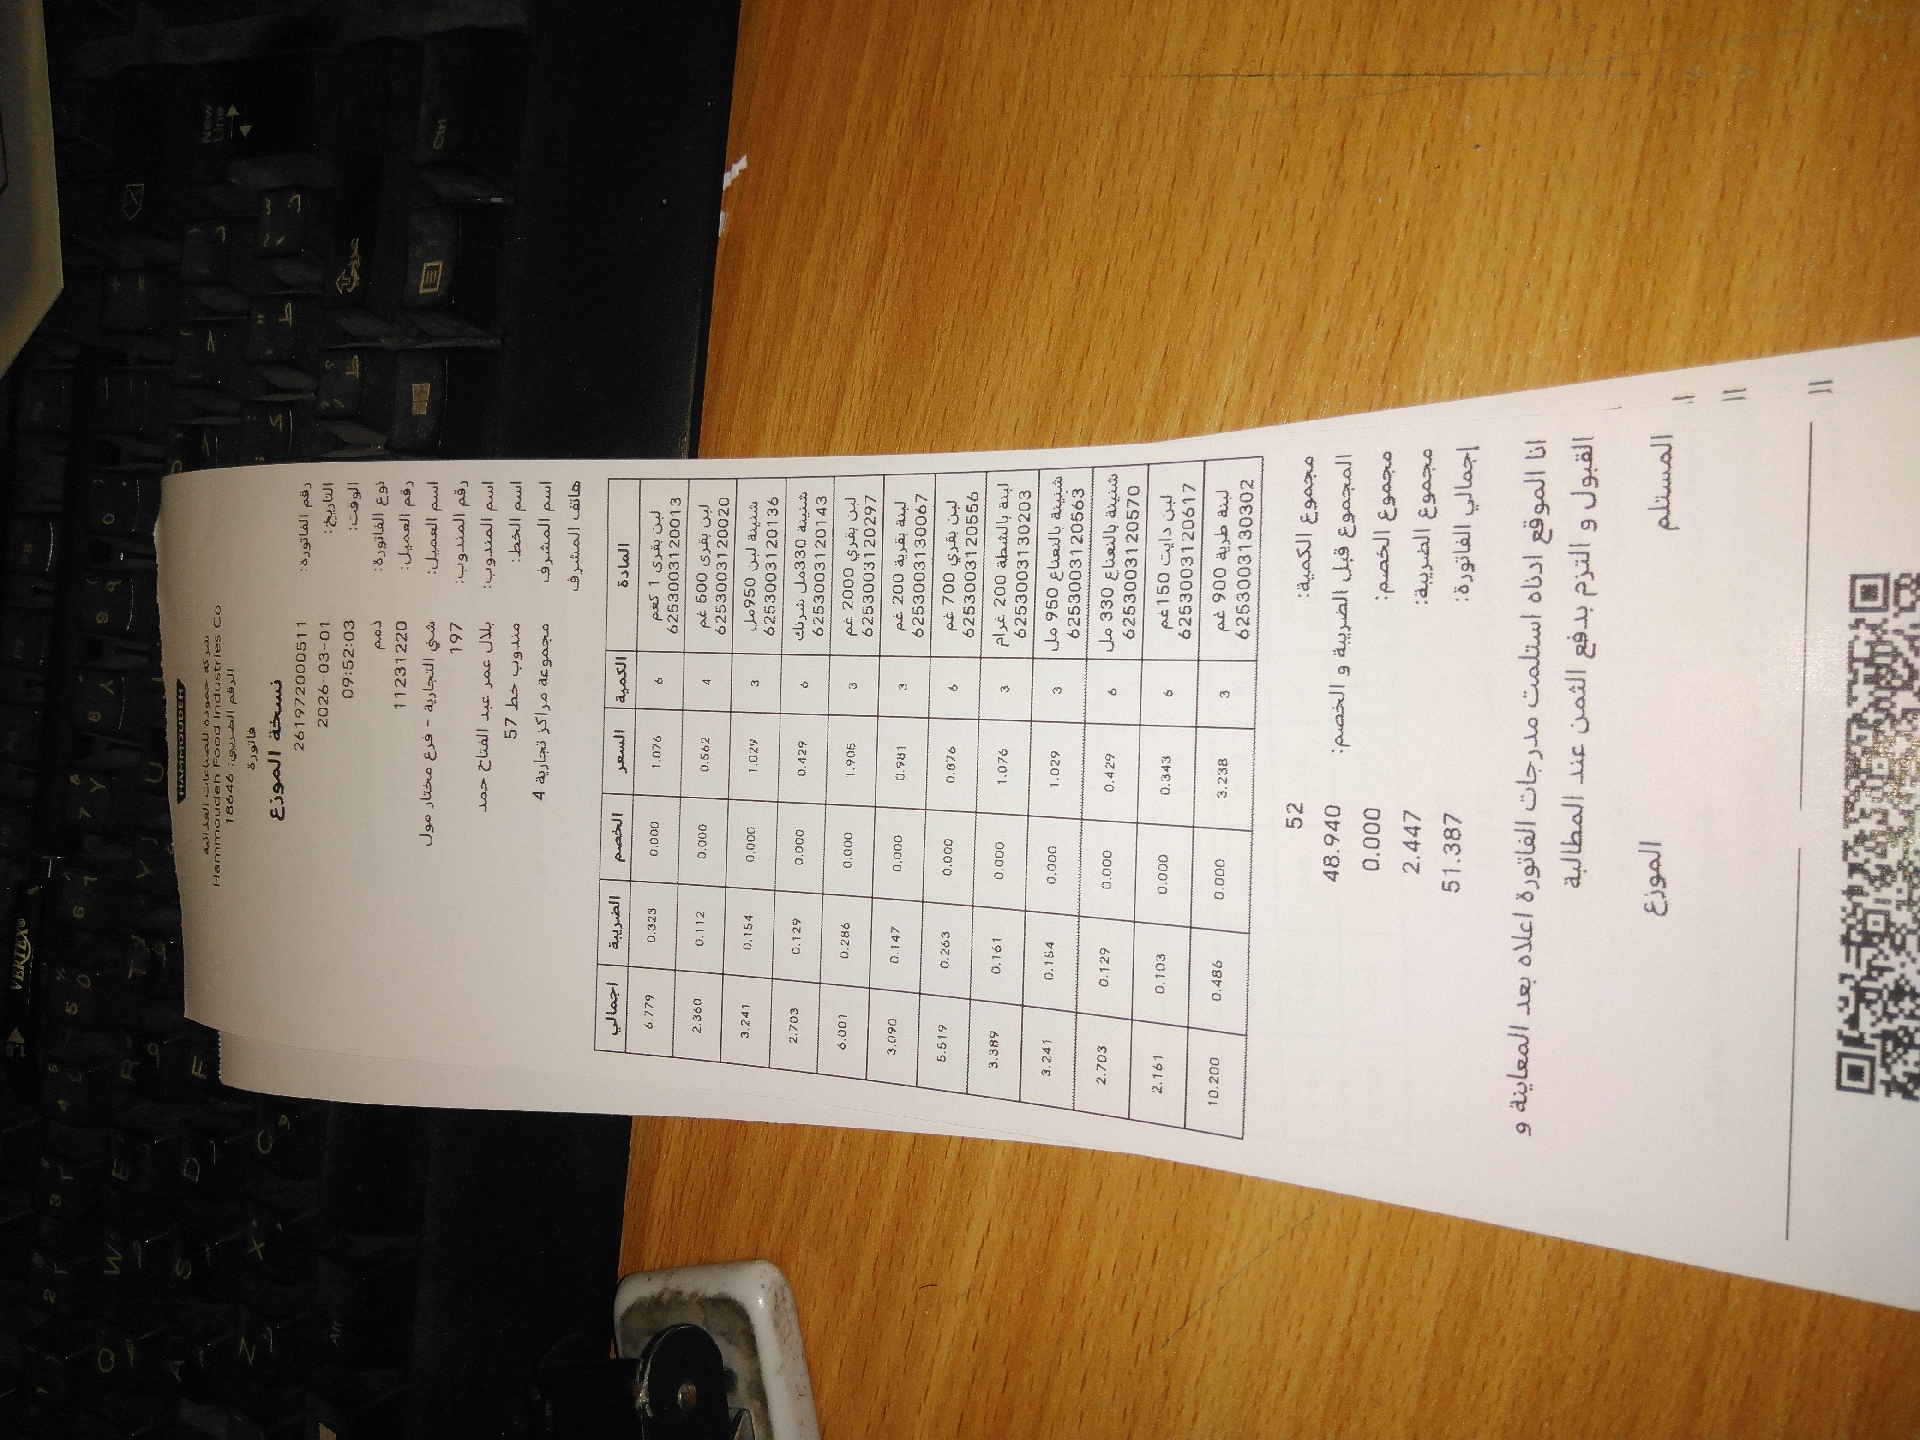 HAMMOUDEH
شركة حمودة للصناعات الغذائية
Hammoudeh Food Industries Co
الرقم الضريبي: 18646
فاتورة
نسخة الموزع
رقم الفاتورة: 26197200051​1
التاريخ: 2026-03-01
الوقت: 09:52:03
نوع الفاتورة: ذمم
رقم العميل: 11231220
اسم العميل: شي التجارية - فرع مختار مول
رقم المندوب: 197
اسم المندوب: بلال عمر عبد الفتاح حمد
اسم الخط: مندوب خط 57
اسم المشرف مجموعة مراكز تجارية 4
هاتف المشرف
المادة الكمية السعر الخصم الضريبة اجمالي
لبن بقري 1 كغم 6 1.076 0.000 0.323 6.779
6253003120013
لبن بقري 500 غم 4 0.562 0.000 0.112 2.360
6253003120020
شنينة لبن 950مل 3 1.029 0.000 0.154 3.241
6253003120136
شنينة 330مل شرنك 6 0.429 0.000 0.129 2.703
6253003120143
لبن بقري 2000 غم 3 1.905 0.000 0.286 6.001
6253003120297
لبنة بقرية 200 غم 3 0.981 0.000 0.147 3.090
6253003130067
لبن بقري 700 غم 6 0.876 0.000 0.263 5.519
6253003120556
لبنة بالشطة 200 غرام 3 1.076 0.000 0.161 3.389
6253003130203
شنينة بالنعناع 950 مل 3 1.029 0.000 0.154 3.241
6253003120563
شنينة بالنعناع 330 مل 6 0.429 0.000 0.129 2.703
6253003120570
لبن دايت 150غم 6 0.343 0.000 0.103 2.161
6253003120617
لبنة طرية 900 غم 3 3.238 0.000 0.486 10.200
6253003130302
مجموع الكمية: 52
المجموع قبل الضريبة و الخصم: 48.940
مجموع الخصم: 0.000
مجموع الضريبة: 2.447
إجمالي الفاتورة: 51.387
انا الموقع ادناه استلمت مدرجات الفاتورة اعلاه بعد المعاينة و
القبول و التزم بدفع الثمن عند المطالبة
المستلم الموزع